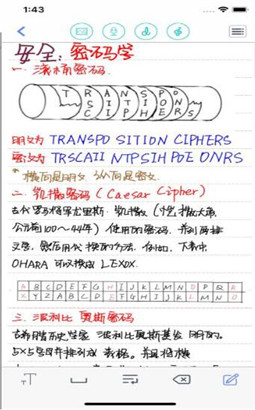 1:43
安全：密码学
一. 滚桶密码.
T R A N S P O
S I T I O N
C I P H E R S
明文为 TRANSPO SITION CIPHERS
密文为 TRSCAII NTPSIH POE ONRS
* 横向是明文 纵向是密文.
二. 凯撒密码 (Caesar Cipher)
古代罗马领导尤里斯·凯撒 (恺撒大帝,
公元前100～44年) 使用的密码. 并到高接
文字, 然后用代换的方法. 例如, 下表中
OHARA 可以换成 LEXOX.
A B C D E F G H I J K L M N O P Q R
X Y Z A B C D E F G H I J K L M N O
三. 波利比奥斯密码
古希腊历史学家 波利比奥斯甚公 明的.
5×5字母并排列成 表格. 并且将横